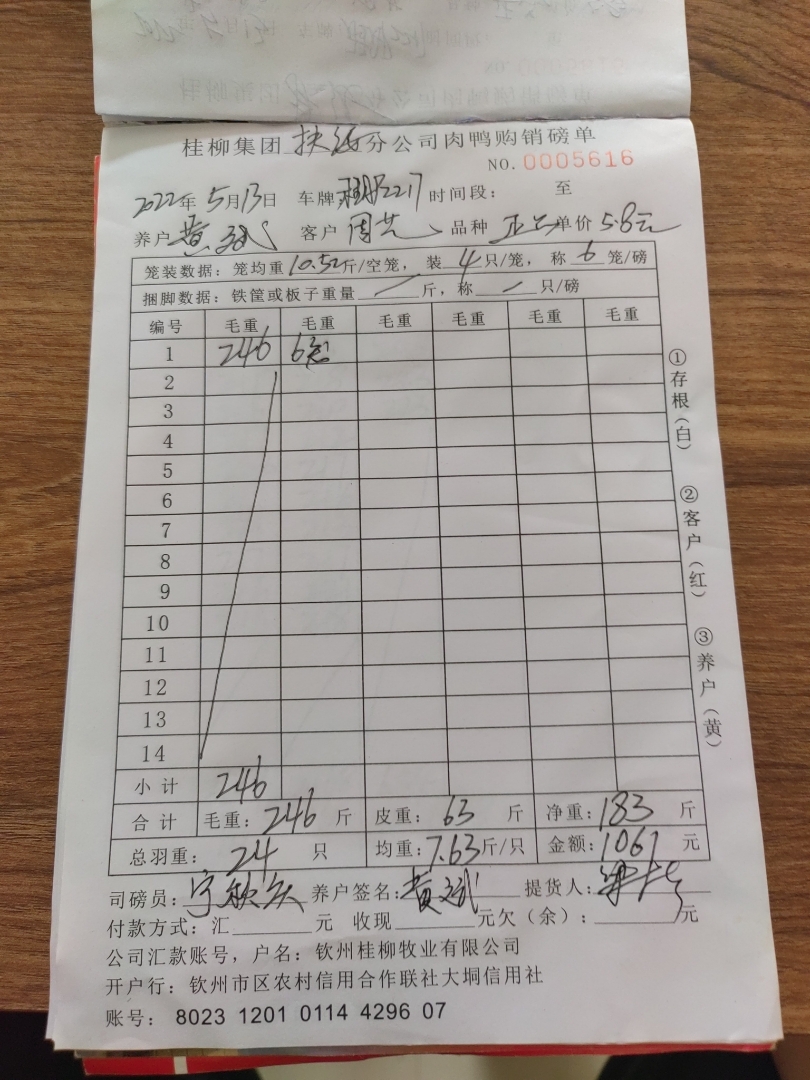 桂柳集团 扶绥 分公司肉鸭购销磅单
NO. 0005616
2022年 5月13日 车牌 2217 时间段： 至
养户 黄斌 客户 周 品种 单价 5.8元
笼装数据：笼均重 10.52 斤/空笼，装 4 只/笼，称 6 笼/磅
捆脚数据：铁筐或板子重量 — 斤，称 — 只/磅
编号 毛重 毛重 毛重 毛重 毛重 毛重
1 246 6笼
2
3
4
5
6
7
8
9
10
11
12
13
14
小计 246
合计 毛重：246 斤 皮重：63 斤 净重：183 斤
总羽重：24 只 均重：7.63斤/只 金额：1061 元
司磅员： 养户签名：黄斌 提货人：
付款方式：汇 元 收现 元欠（余）： 元
公司汇款账号，户名：钦州桂柳牧业有限公司
开户行：钦州市区农村信用合作联社大垌信用社
账号： 8023 1201 0114 4296 07
①存根（白）
②客户（红）
③养户（黄）